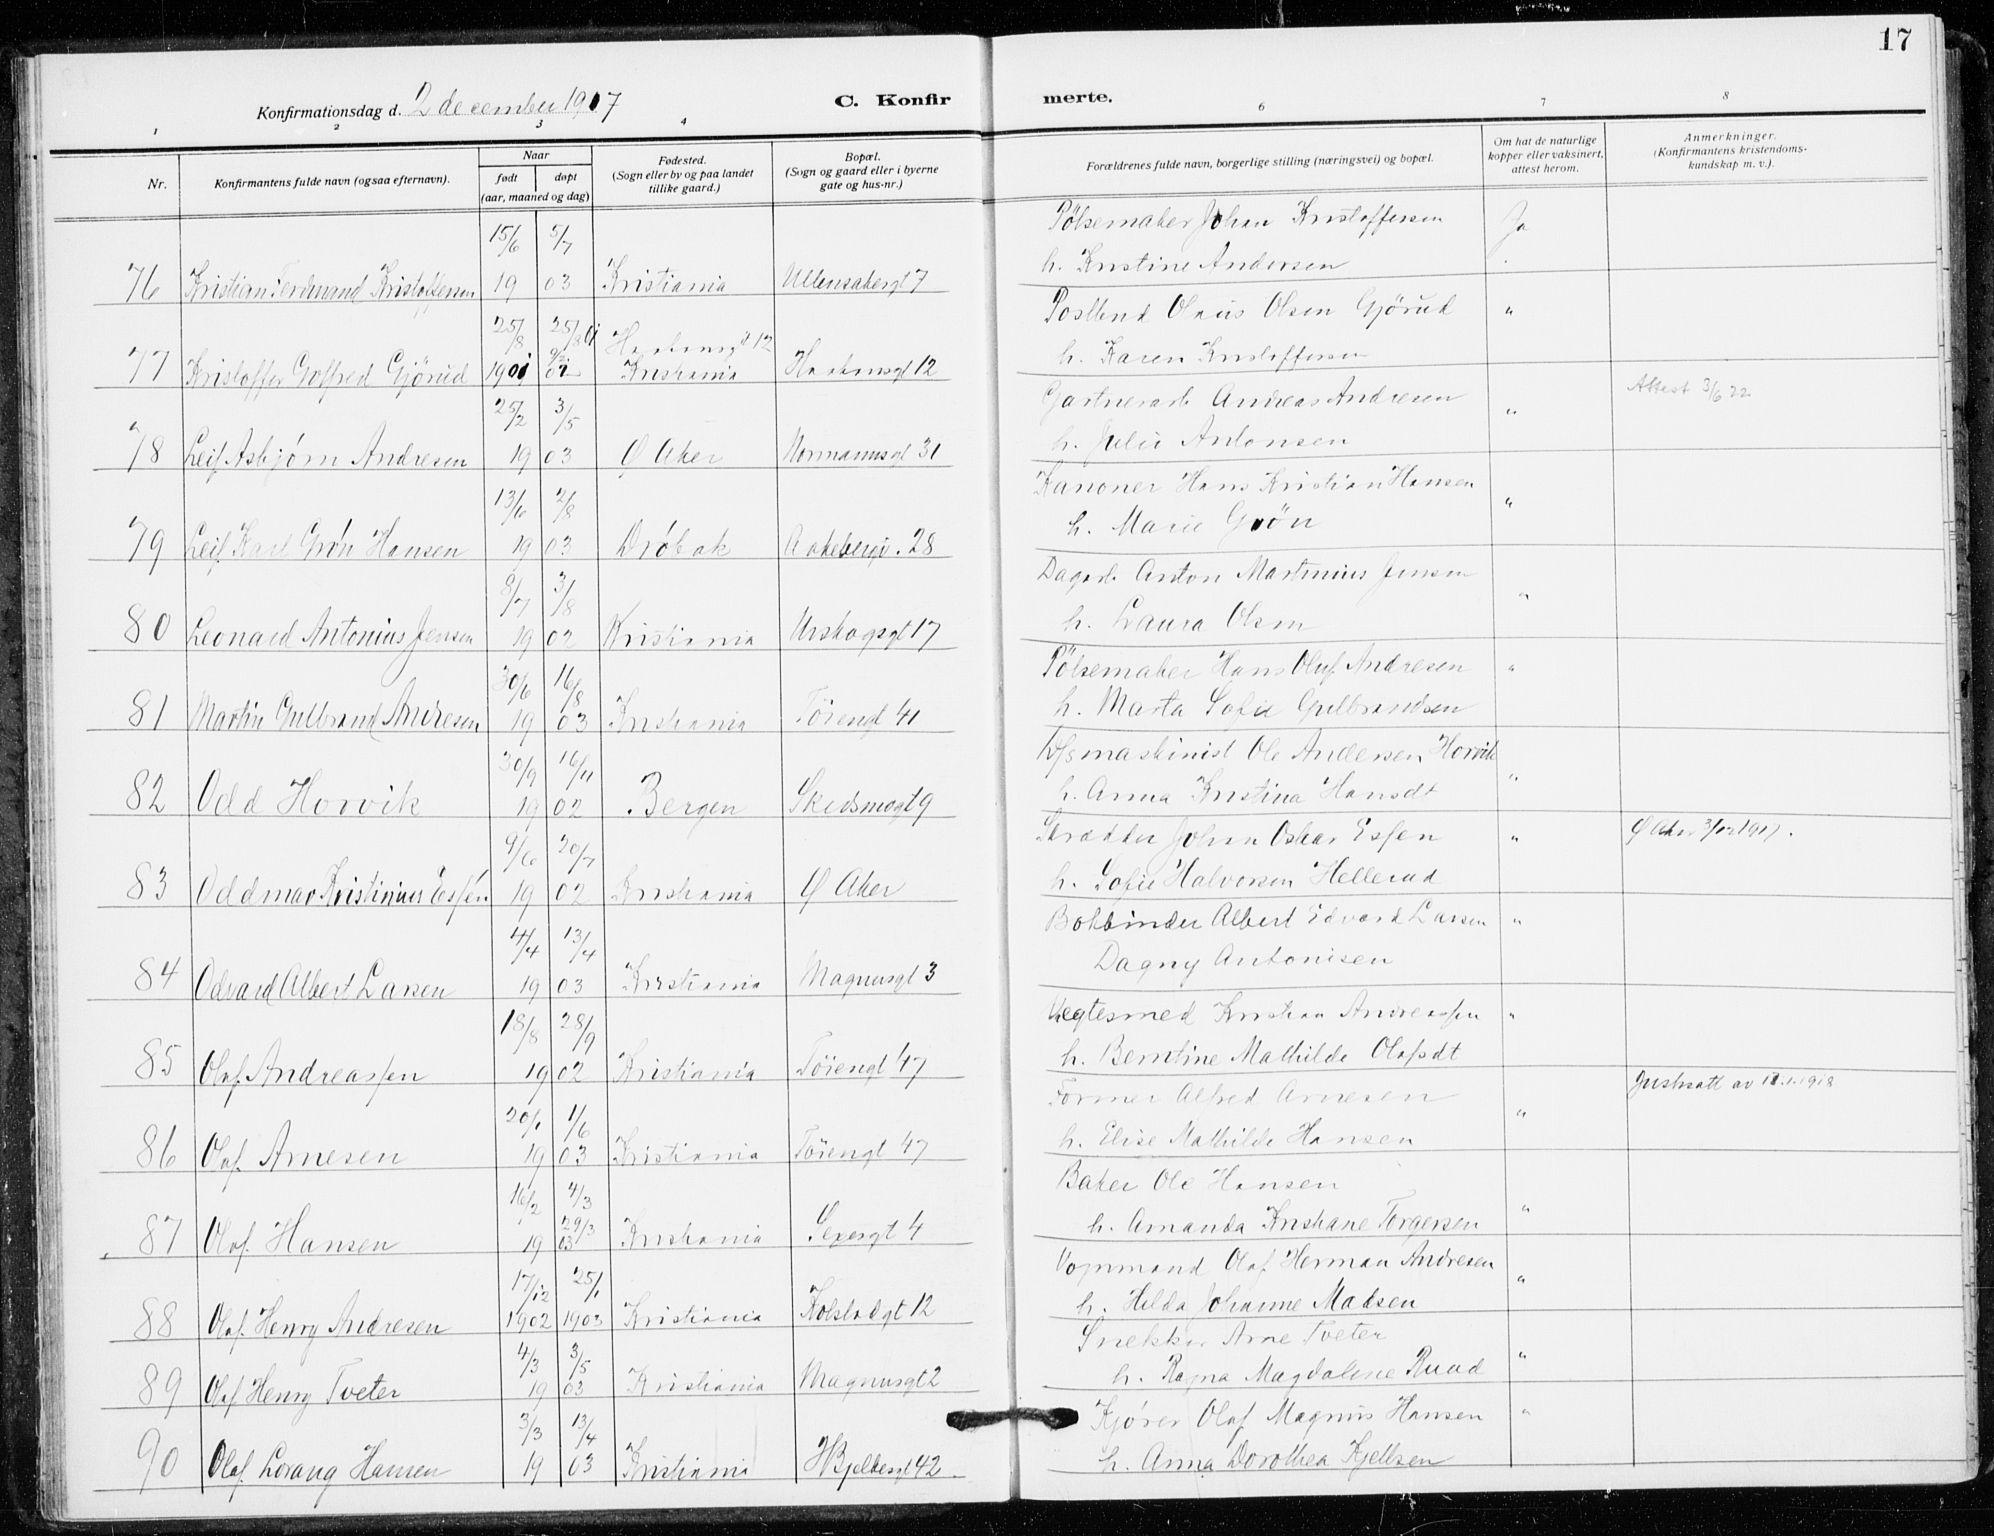 17
Konfirmationsdag d. 2 december 1917
C. Konfir
merte.
1 2 3 4 6 7 8
Nr.
Konfirmantens fulde navn (ogsaa efternavn).
Naar
født døpt
(aar, maaned og dag)
Fødested.
(Sogn eller by og paa landet
tillike gaard.)
Bopæl.
(Sogn og gaard eller i byerne
gate og hus-nr.)
Forældrenes fulde navn, borgerlige stilling (næringsvei) og bopæl.
Om hat de naturlige
kopper eller vaksinert,
attest herom.
Anmerkninger.
(Konfirmantens kristendoms-
kundskap m. v.).
15/6 5/7 Pølsemaker Johan Kristoffersen Ja
76 Kristian Ferdinand Kristoffersen 19 03 Kristiania Ullensakergt 7 h. Kristine Andersen
25/8 25/8 01 Haakonsgt 12 Postbud Olaus Olsen Gjørud "
77 Kristoffer Gotfred Gjørud 1901 Kristiania Haakonsgt 12 h. Karen Kristoffersen
25/2 3/5 Gartnerarb Andreas Andresen " Attest 3/6 22
78 Leif Asbjørn Andresen 19 03 Ø Aker Normannsgt 31 h. Julie Antonsen
13/6 2/8 Kanoner Hans Kristian Hansen "
79 Leif Karl Grøn Hansen 19 03 Drøbak Aakebergv. 28 h. Marie Grøn
8/7 3/8 Dagarb Anton Martinius Jensen "
80 Leonard Antonius Jensen 19 02 Kristiania Urskogsgt 17 h. Laura Olsen
30/6 16/8 Pølsemaker Hans Oluf Andresen "
81 Martin Gulbrand Andresen 19 03 Kristiania Tøiengt 41 h. Marta Sofie Gulbrandsen
30/9 16/11 D/Smaskinist Ole Andersen Horvik "
82 Odd Horvik 19 02 Bergen Skedsmogt 9 h. Anna Kristina Hansdt
9/6 20/7 Skrædder Johan Oskar Esfen " Ø Aker 3/12 1917.
83 Oddmar Kristinius Esfen 19 02 Kristiania Ø Aker h. Sofie Halvorsen Hellerud
4/4 13/4 Bokbinder Albert Edvard Larsen "
84 Odvard Albert Larsen 19 03 Kristiania Magnusgt 3 Dagny Antonisen
18/8 28/9 Vegtesmed Kristian Andreassen "
85 Olaf Andreassen 19 02 Kristiania Tøiengt 47 h. Berntine Mathilde Olafsdt
20/1 1/6 Former Alfred Arnesen " Justisatt av 11.1.1918
86 Olaf Arnesen 19 03 Kristiania Tøiengt 47 h. Elise Mathilde Hansen
16/2 4/3 Baker Ole Hansen "
29/3
87 Olaf Hansen 19 03 Kristiania Sexesgt 4 h. Amanda Kristiane Torgersen
17/12 25/1 Vognmand Olaf Herman Andresen "
88 Olaf Henry Andresen 1902 1903 Kristiania Kolstadgt 12 h. Hilda Johanne Madsen
4/3 3/5 Snekker Arne Tveter "
89 Olaf Henry Tveter 19 03 Kristiania Magnusgt 2 h. Ragna Magdalene Ruud
3/3 13/4 Kjører Olaf Magnus Hansen "
90 Olaf Lorang Hansen 19 03 Kristiania Hjelbergt 42 h. Anna Dorothea Kjellsen